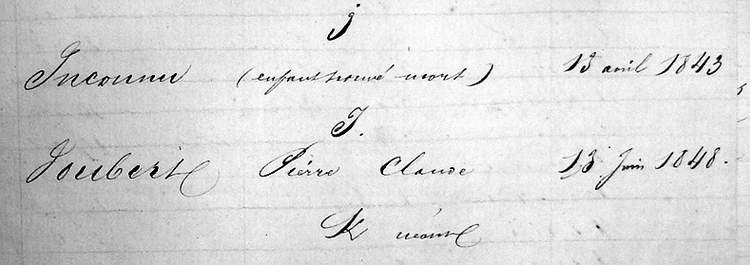 I
Inconnu (enfant trouvé mort) 13 avril 1843
J.
Joubert Pierre Claude 13 Juin 1848.
K néant